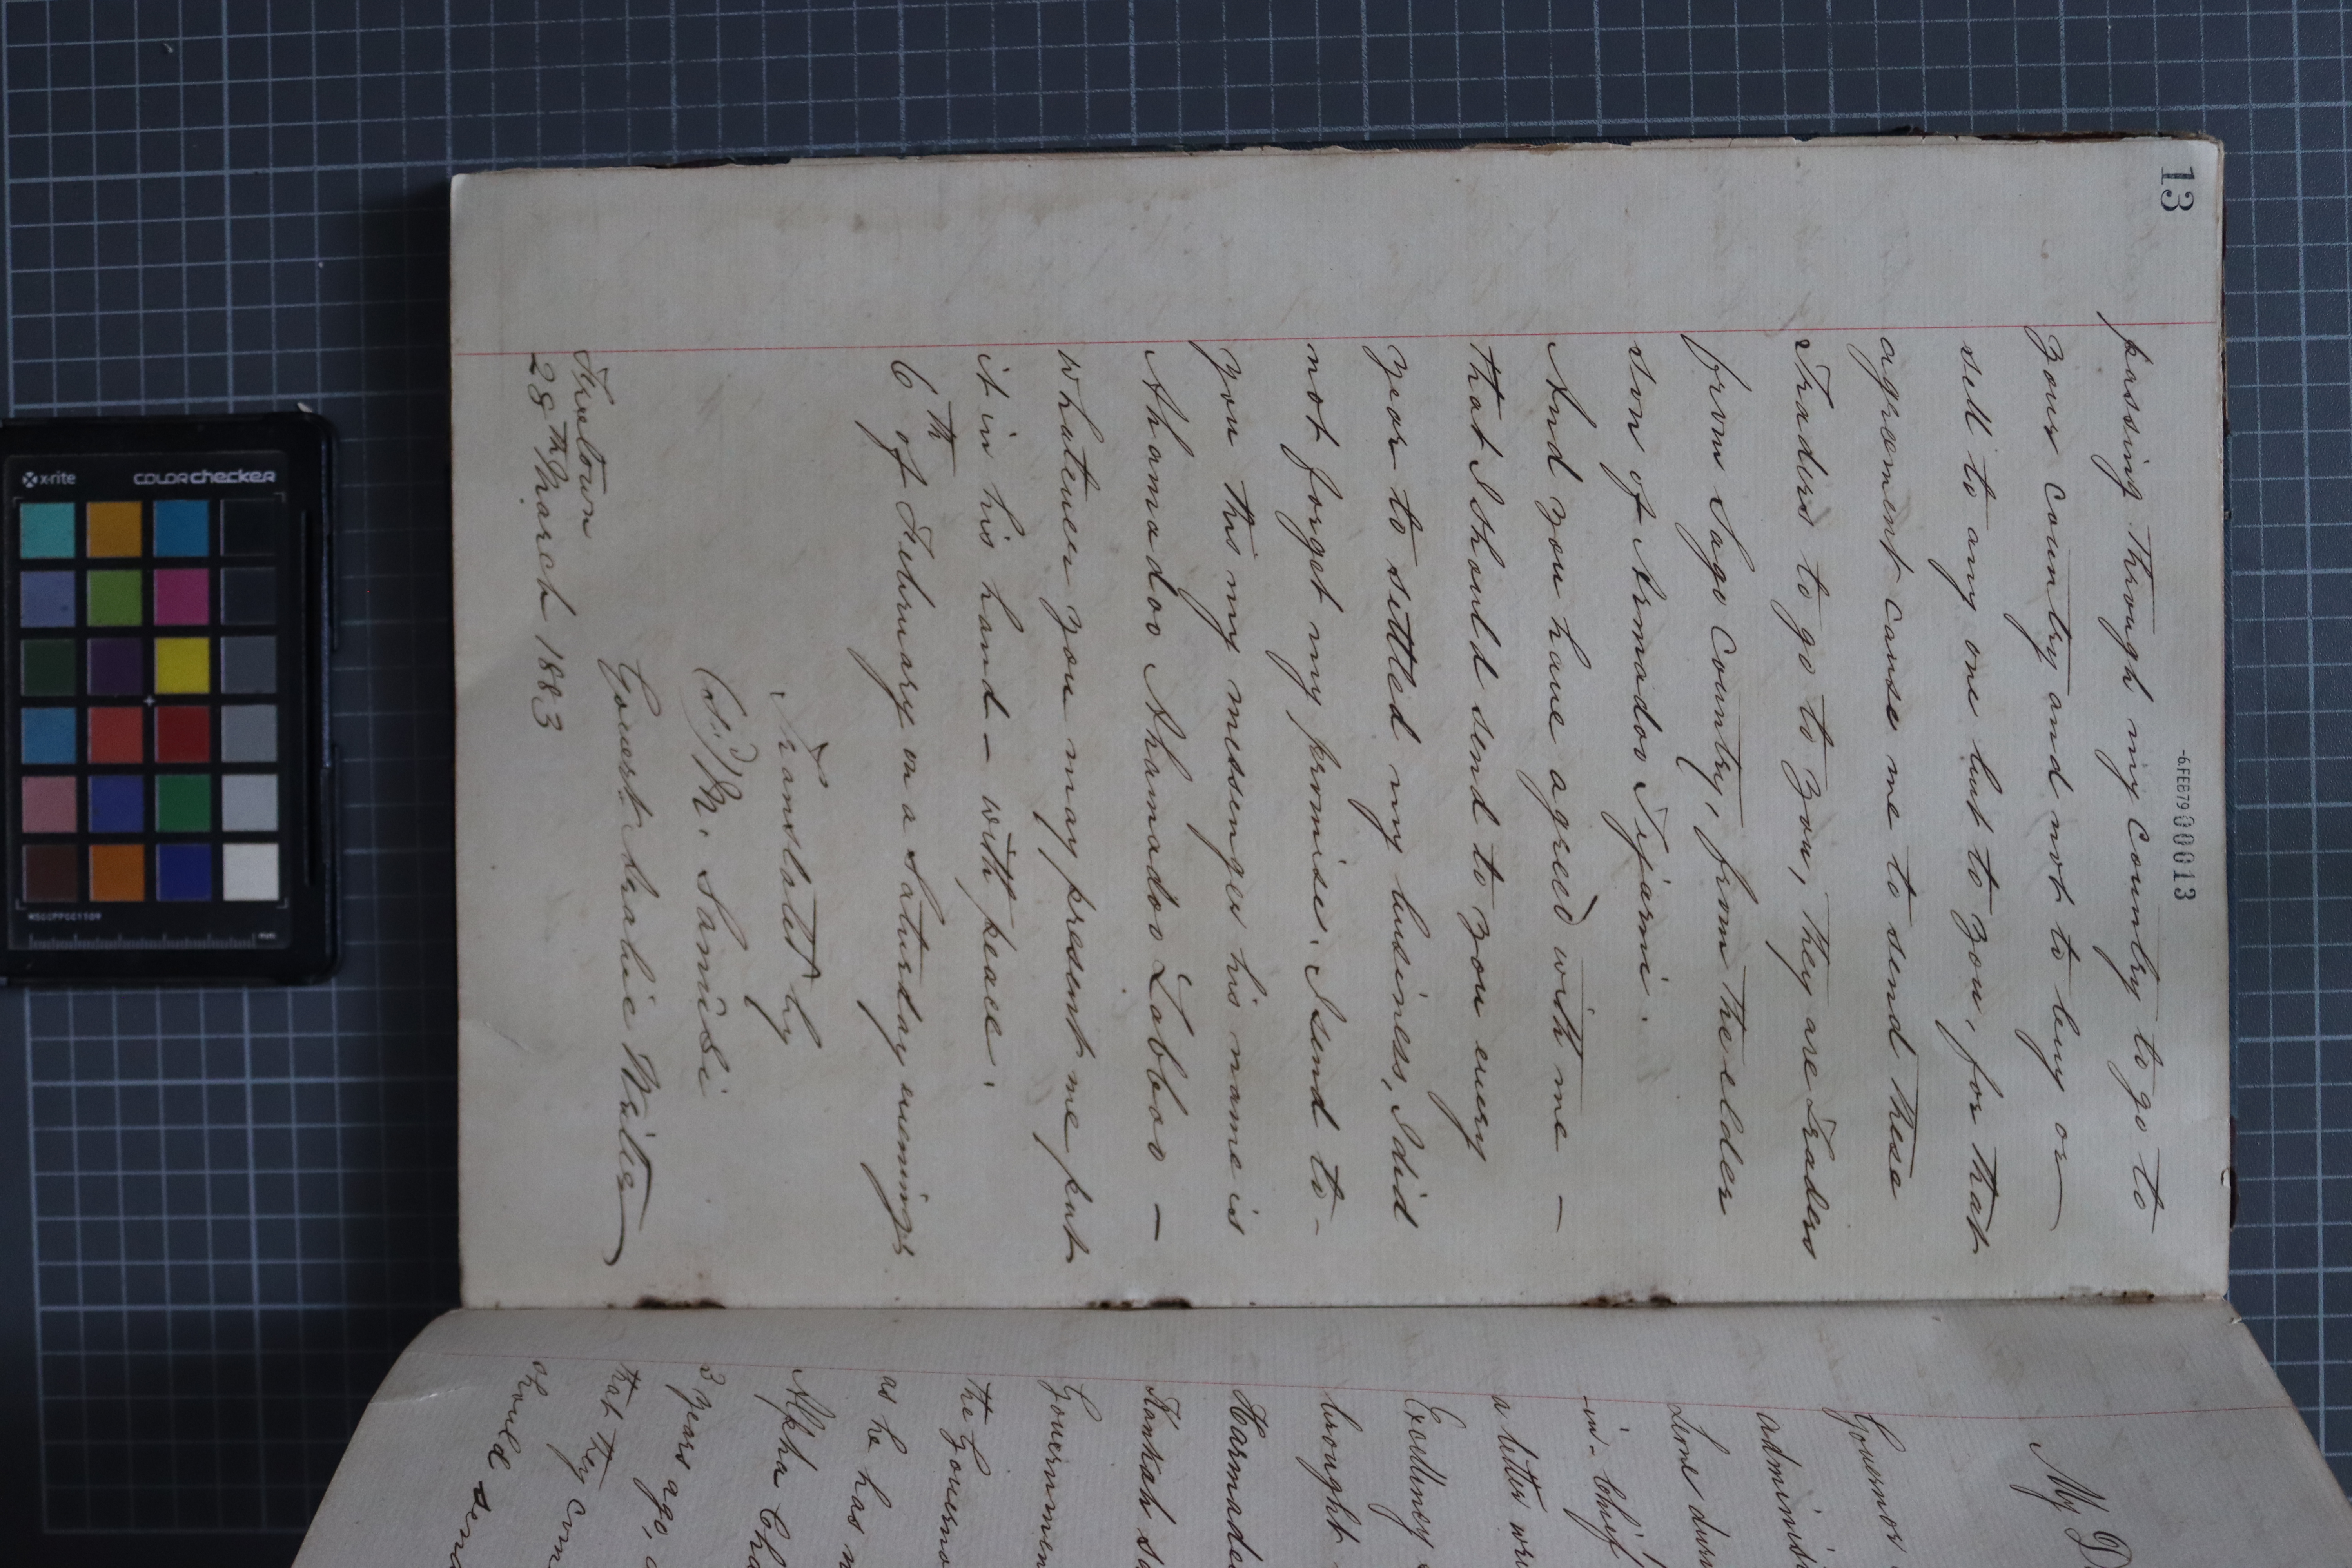 13
-6.FEB79 000013
passing through my country to go to
your country and not to buy or
sell to any one but to you, for that
agreement cause me to send these
Traders to go to you, they are Traders
from Sago Country, from the elder
son of Armadoo Tijami.
And you have agreed with me —
that I should send to you every
year to settled my business, I did
not forget my promise. I send to-
you this my messenger his name is
Ahamadoo Ahamadoo Lobboo —
whatever you may present me put
it in his hand – with peace.
6th of February on a Saturday evenings
Translated by
(Sd) M. Sanusi
Govert. Arabic Writer
Freetown
28th March 1883
My D
Governor
adminis
Leone dur
in-Chief
a letter wri
Excellency
brought
Harmado
Kankah S
Governmen
the Governo
as he has n
Alpha
3 years ago,
that they com
should sen
x-rite
COLORchecker
mm